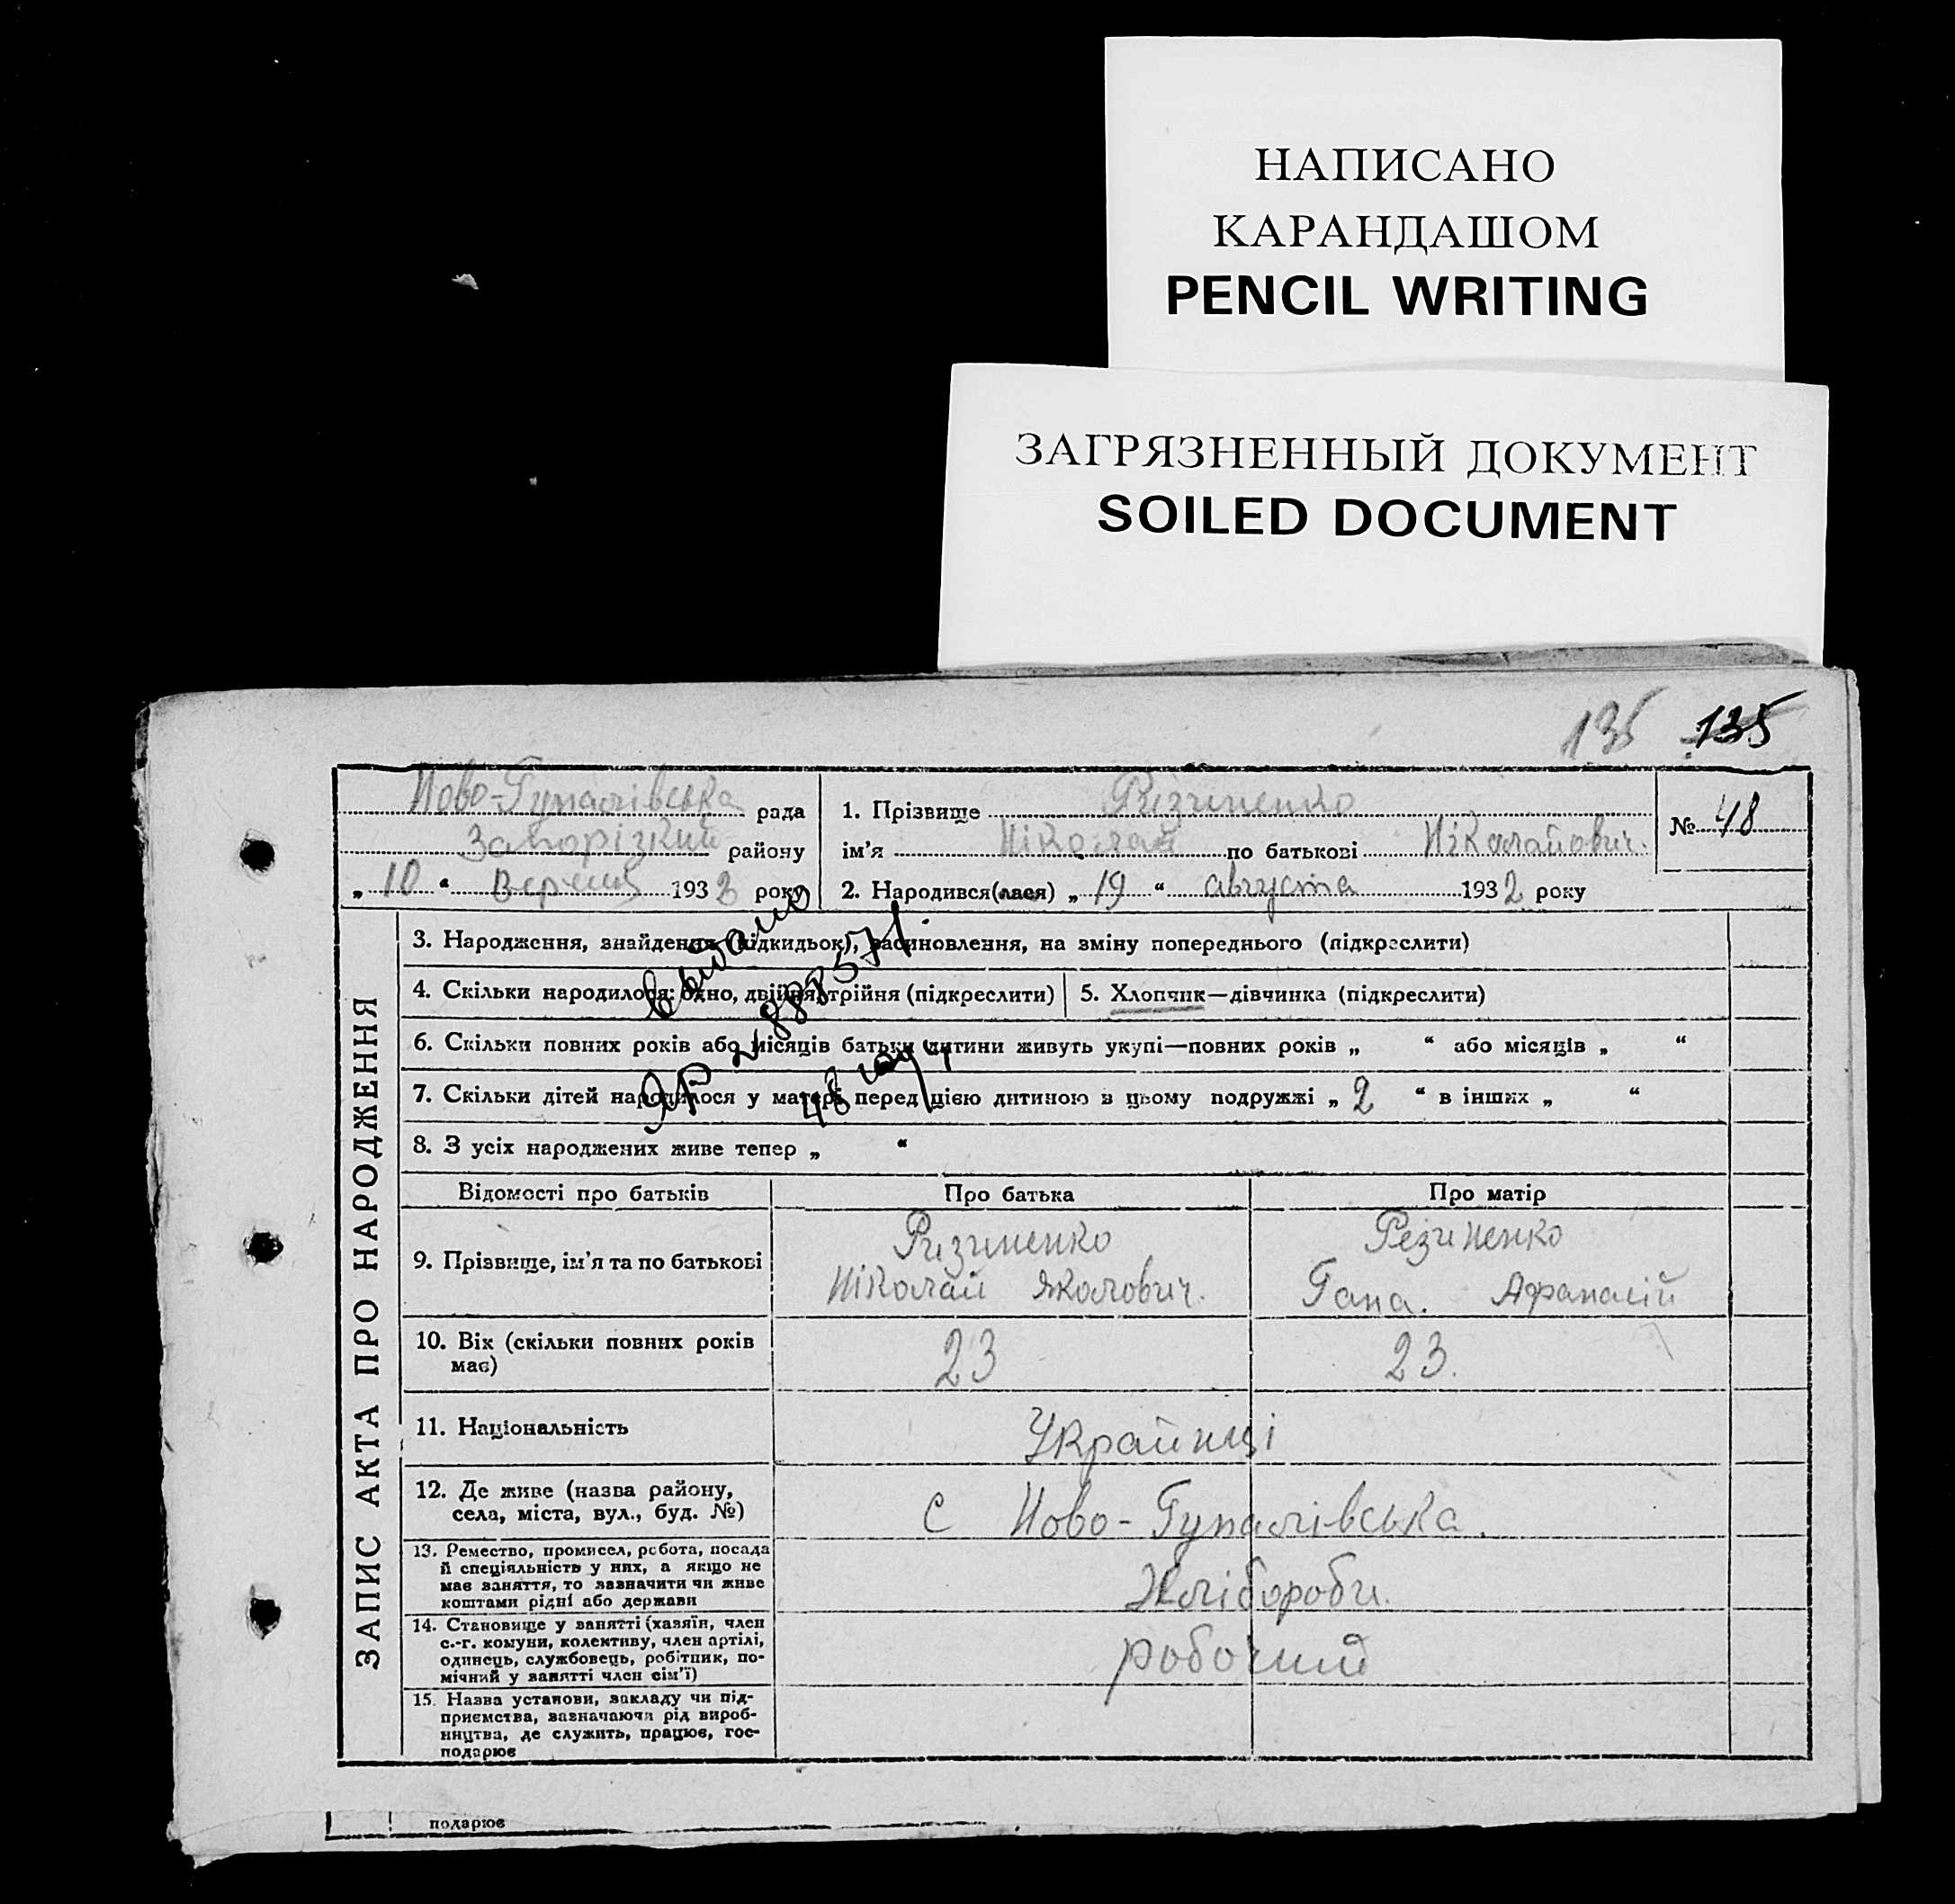 НАПИСАНО
КАРАНДАШОМ
PENCIL WRITING
ЗАГРЯЗНЕННЫЙ ДОКУМЕНТ
SOILED DOCUMENT
135 135
Ново-Гупалівська рада
Запорізкий району
„ 10 “ Вересня 1932 року
1. Прізвище Ризиненко
ім’я Ніколай по батькові Ніколайович.
2. Народився(лася) „ 19 “ августа 1932 року
№ 48
ЗАПИС АКТА ПРО НАРОДЖЕННЯ
3. Народження, знайдення (підкидьок), всиновлення, на зміну попереднього (підкреслити)
4. Скільки народилося: одно, двійня, трійня (підкреслити)
5. Хлопчик—дівчинка (підкреслити)
6. Скільки повних років або місяців батьки дитини живуть укупі—повних років „ “ або місяців „ “
7. Скільки дітей народилося у матері перед цією дитиною в цьому подружжі „ 2 “ в інших „ “
8. З усіх народжених живе тепер „ “
Відомості про батьків
Про батька
Про матір
9. Прізвище, ім’я та по батькові
Ризиненко
Ніколай Яколович.
Резиненко
Гана. Афанасій
10. Вік (скільки повних років
має)
23
23.
11. Національність
Українці
12. Де живе (назва району,
села, міста, вул., буд. №)
С Ново-Гупалівська.
13. Ремество, промисел, робота, посада
й спеціяльність у них, а якщо не
має заняття, то зазначити чи живе
коштами рідні або держави
Хлібороби.
14. Становище у занятті (хазяїн, член
с.-г. комуни, колективу, член артілі,
одинець, службовець, робітник, по-
мічний у занятті член сім’ї)
робочий
15. Назва установи, закладу чи під-
приємства, зазначаючи рід вироб-
ництва, де служить, працює, гос-
подарює
подарює